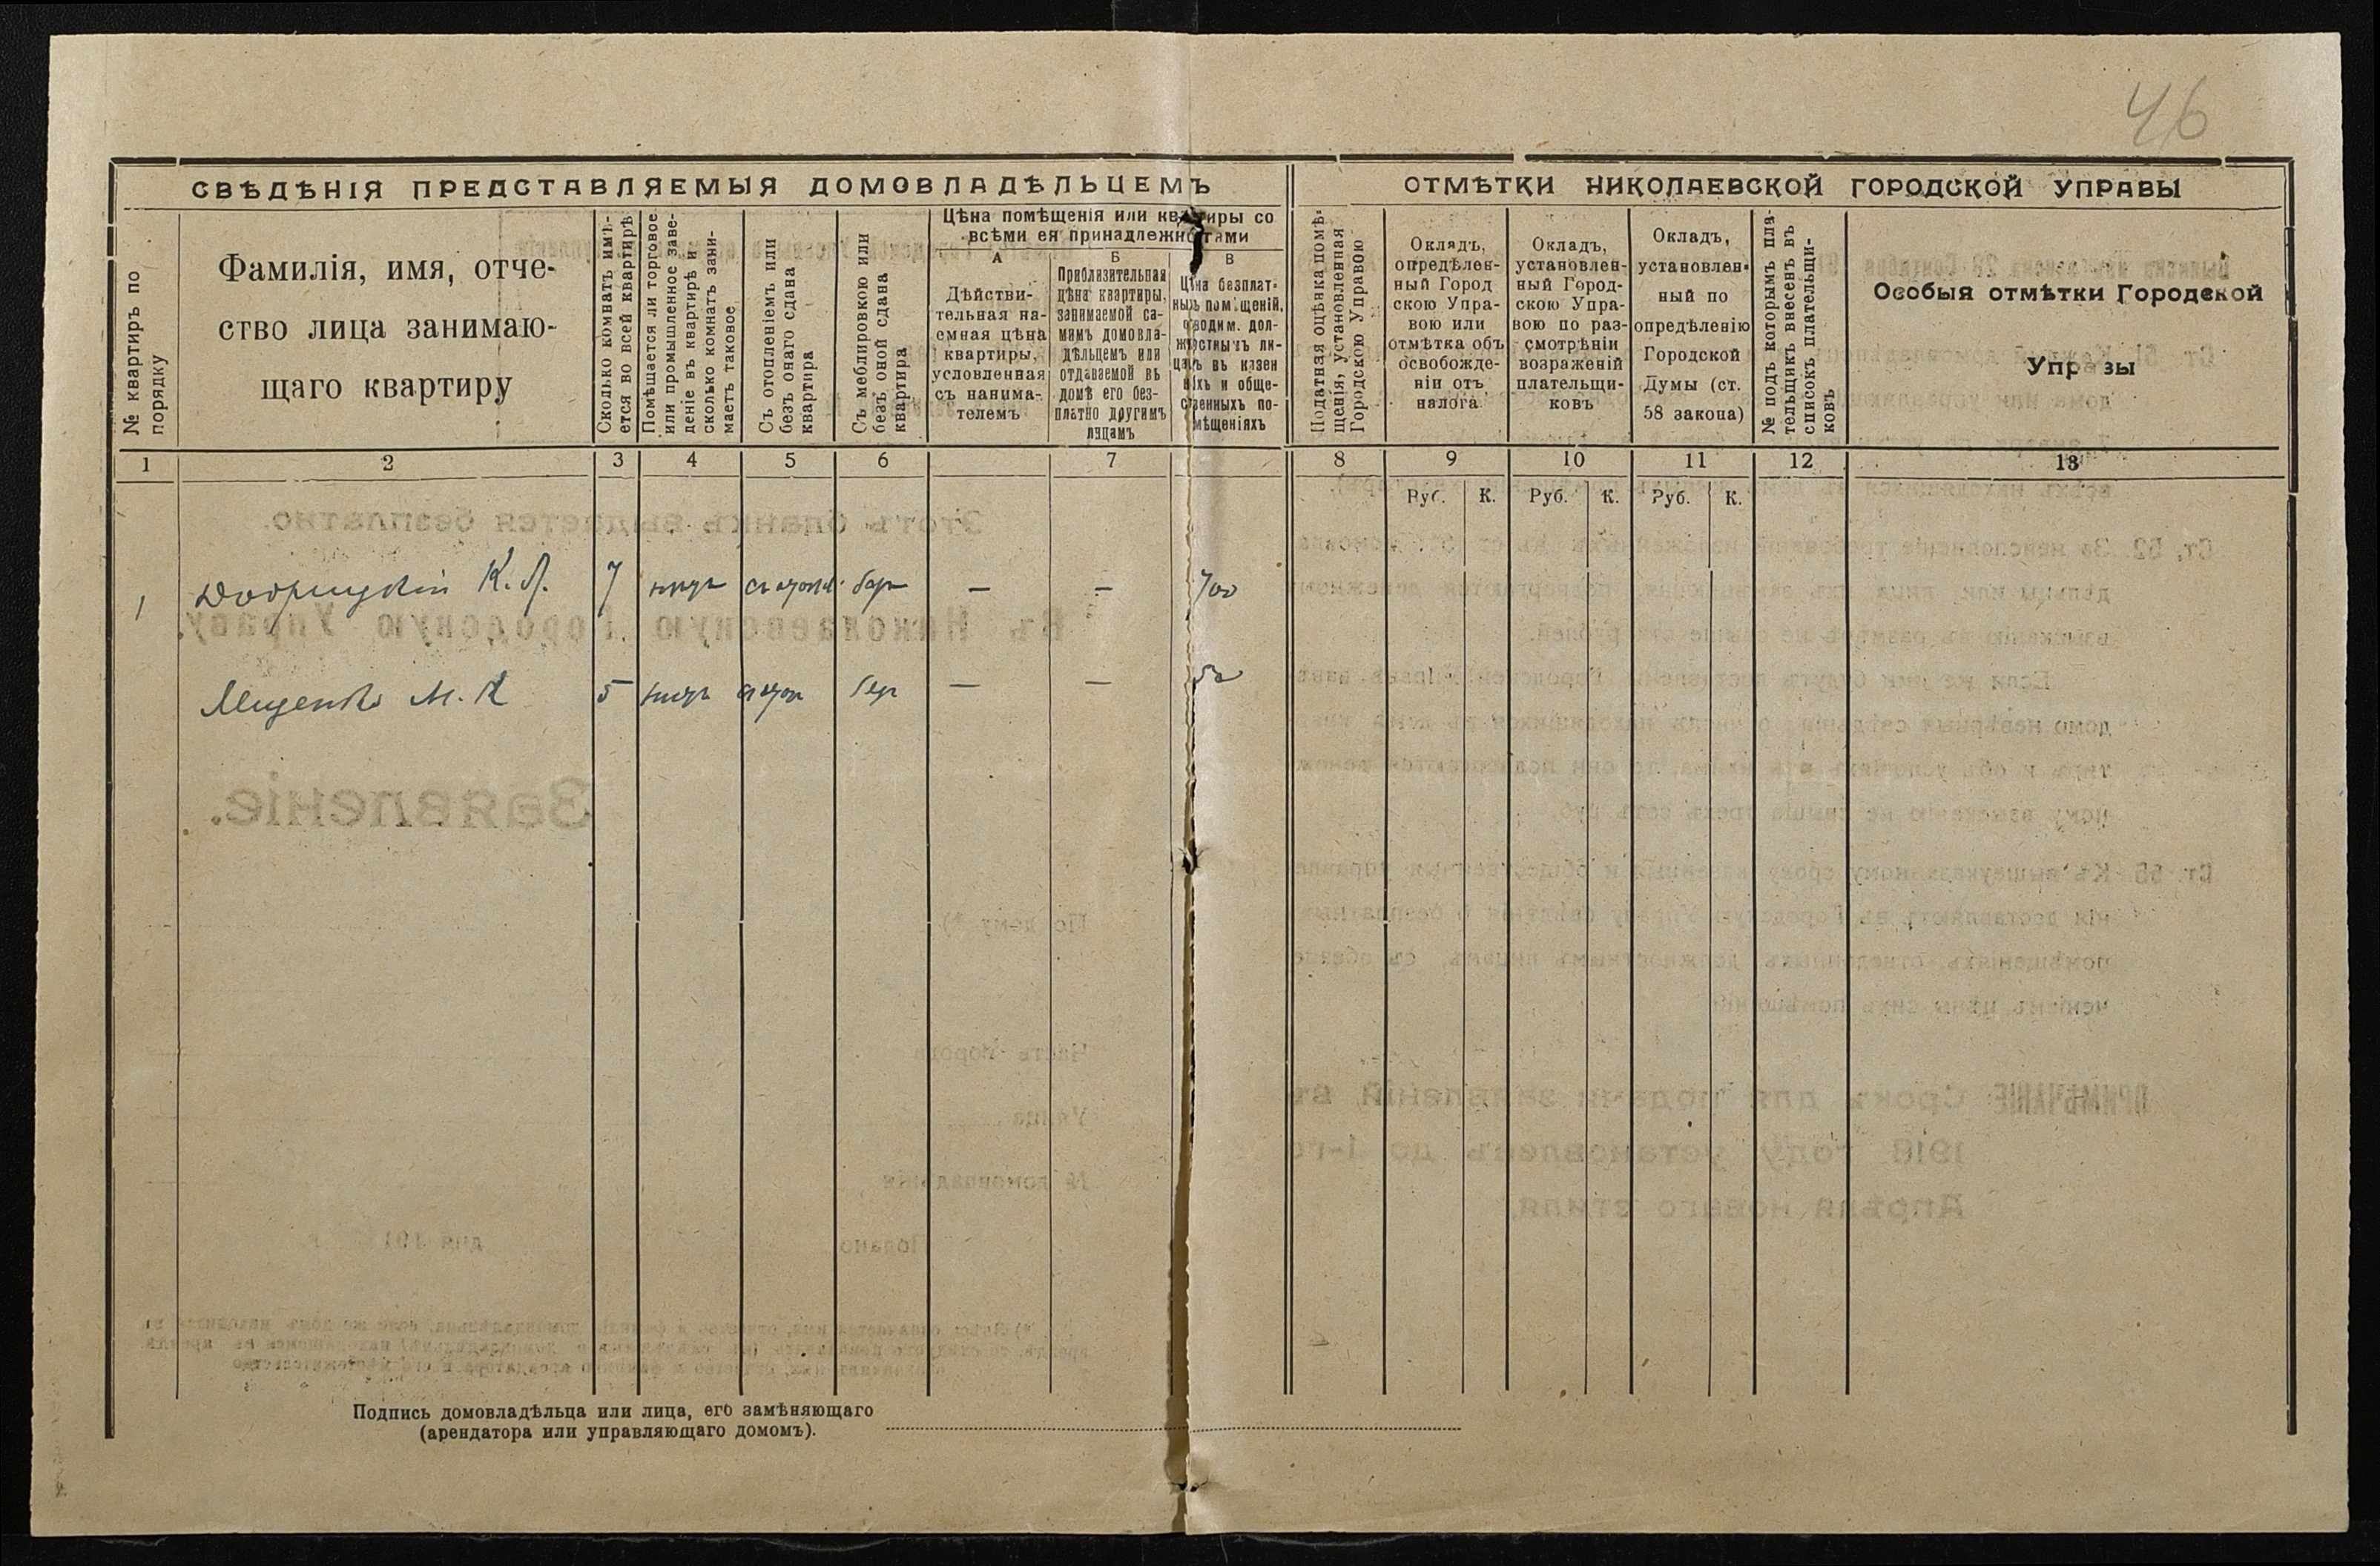 46
СВѢДѢНІЯ ПРЕДСТАВЛЯЕМЫЯ ДОМОВЛАДѢЛЬЦЕМЪ
ОТМѢТКИ НИКОЛАЕВСКОЙ ГОРОДСКОЙ УПРАВЫ
№ квартиръ по
порядку
Фамилія, имя, отче-
ство лица занимаю-
щаго квартиру
Сколько комнатъ имѣ-
ется во всей квартирѣ
Помѣщается ли торговое
или промышленное заве-
деніе въ квартирѣ и
сколько комнатъ зани-
маетъ таковое
Съ отопленіемъ или
безъ онаго сдана
квартира
Съ меблировкою или
безъ оной сдана
квартира
Цѣна помѣщенія или квартиры со
всѣми ея принадлежностами
А
Дѣйстви-
тельная на-
емная цѣна
квартиры,
условленная
съ нанима-
телемъ
Б
Приблизительная
цѣна квартиры,
занимаемой са-
мимъ домовла-
дѣльцемъ или
отдаваемой въ
домѣ его без-
платно другимъ
лицамъ
В
Цѣна безплат-
ныхъ помѣщеній,
отводим. дол-
жностнымъ ли-
цамъ въ казен
ныхъ и обще-
ственныхъ по-
мѣщеніяхъ
Податная оцѣнка помѣ-
щенія, установленная
Городскою Управою
Окладъ,
опредѣлен-
ный Город
скою Упра-
вою или
отмѣтка объ
освобожде-
ніи отъ
налога
Окладъ,
установлен-
ный Город-
скою Упра-
вою по раз-
смотрѣніи
возраженій
плательщи-
ковъ
Окладъ,
установлен-
ный по
опредѣленію
Городской
Думы (ст.
58 закона)
№ подъ которымъ пла-
тельщикъ внесенъ въ
списокъ плательщи-
ковъ
Особыя отмѣтки Городской
Управы
1 2 3 4 5 6 7 8 9 10 11 12 13
Руб. К. Руб. К. Руб. К.
1 К. Л. 7 — — 700
Мищенко М. К 5 — —
Подпись домовладѣльца или лица, его замѣняющаго
(арендатора или управляющаго домомъ).